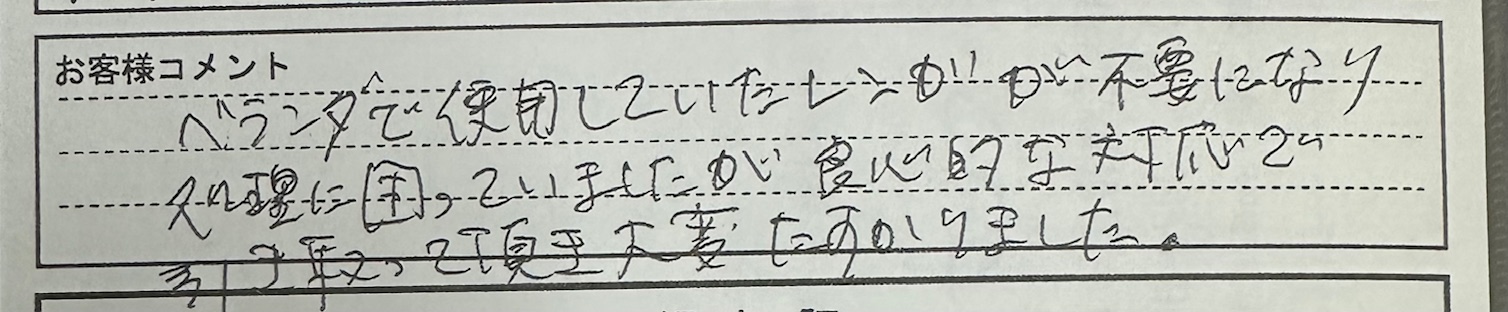 お客様コメント
ベランダで使用していたレンガが不要になり
処理に困っていましたが良心的な対応で
引き取って頂き大変たすかりました。